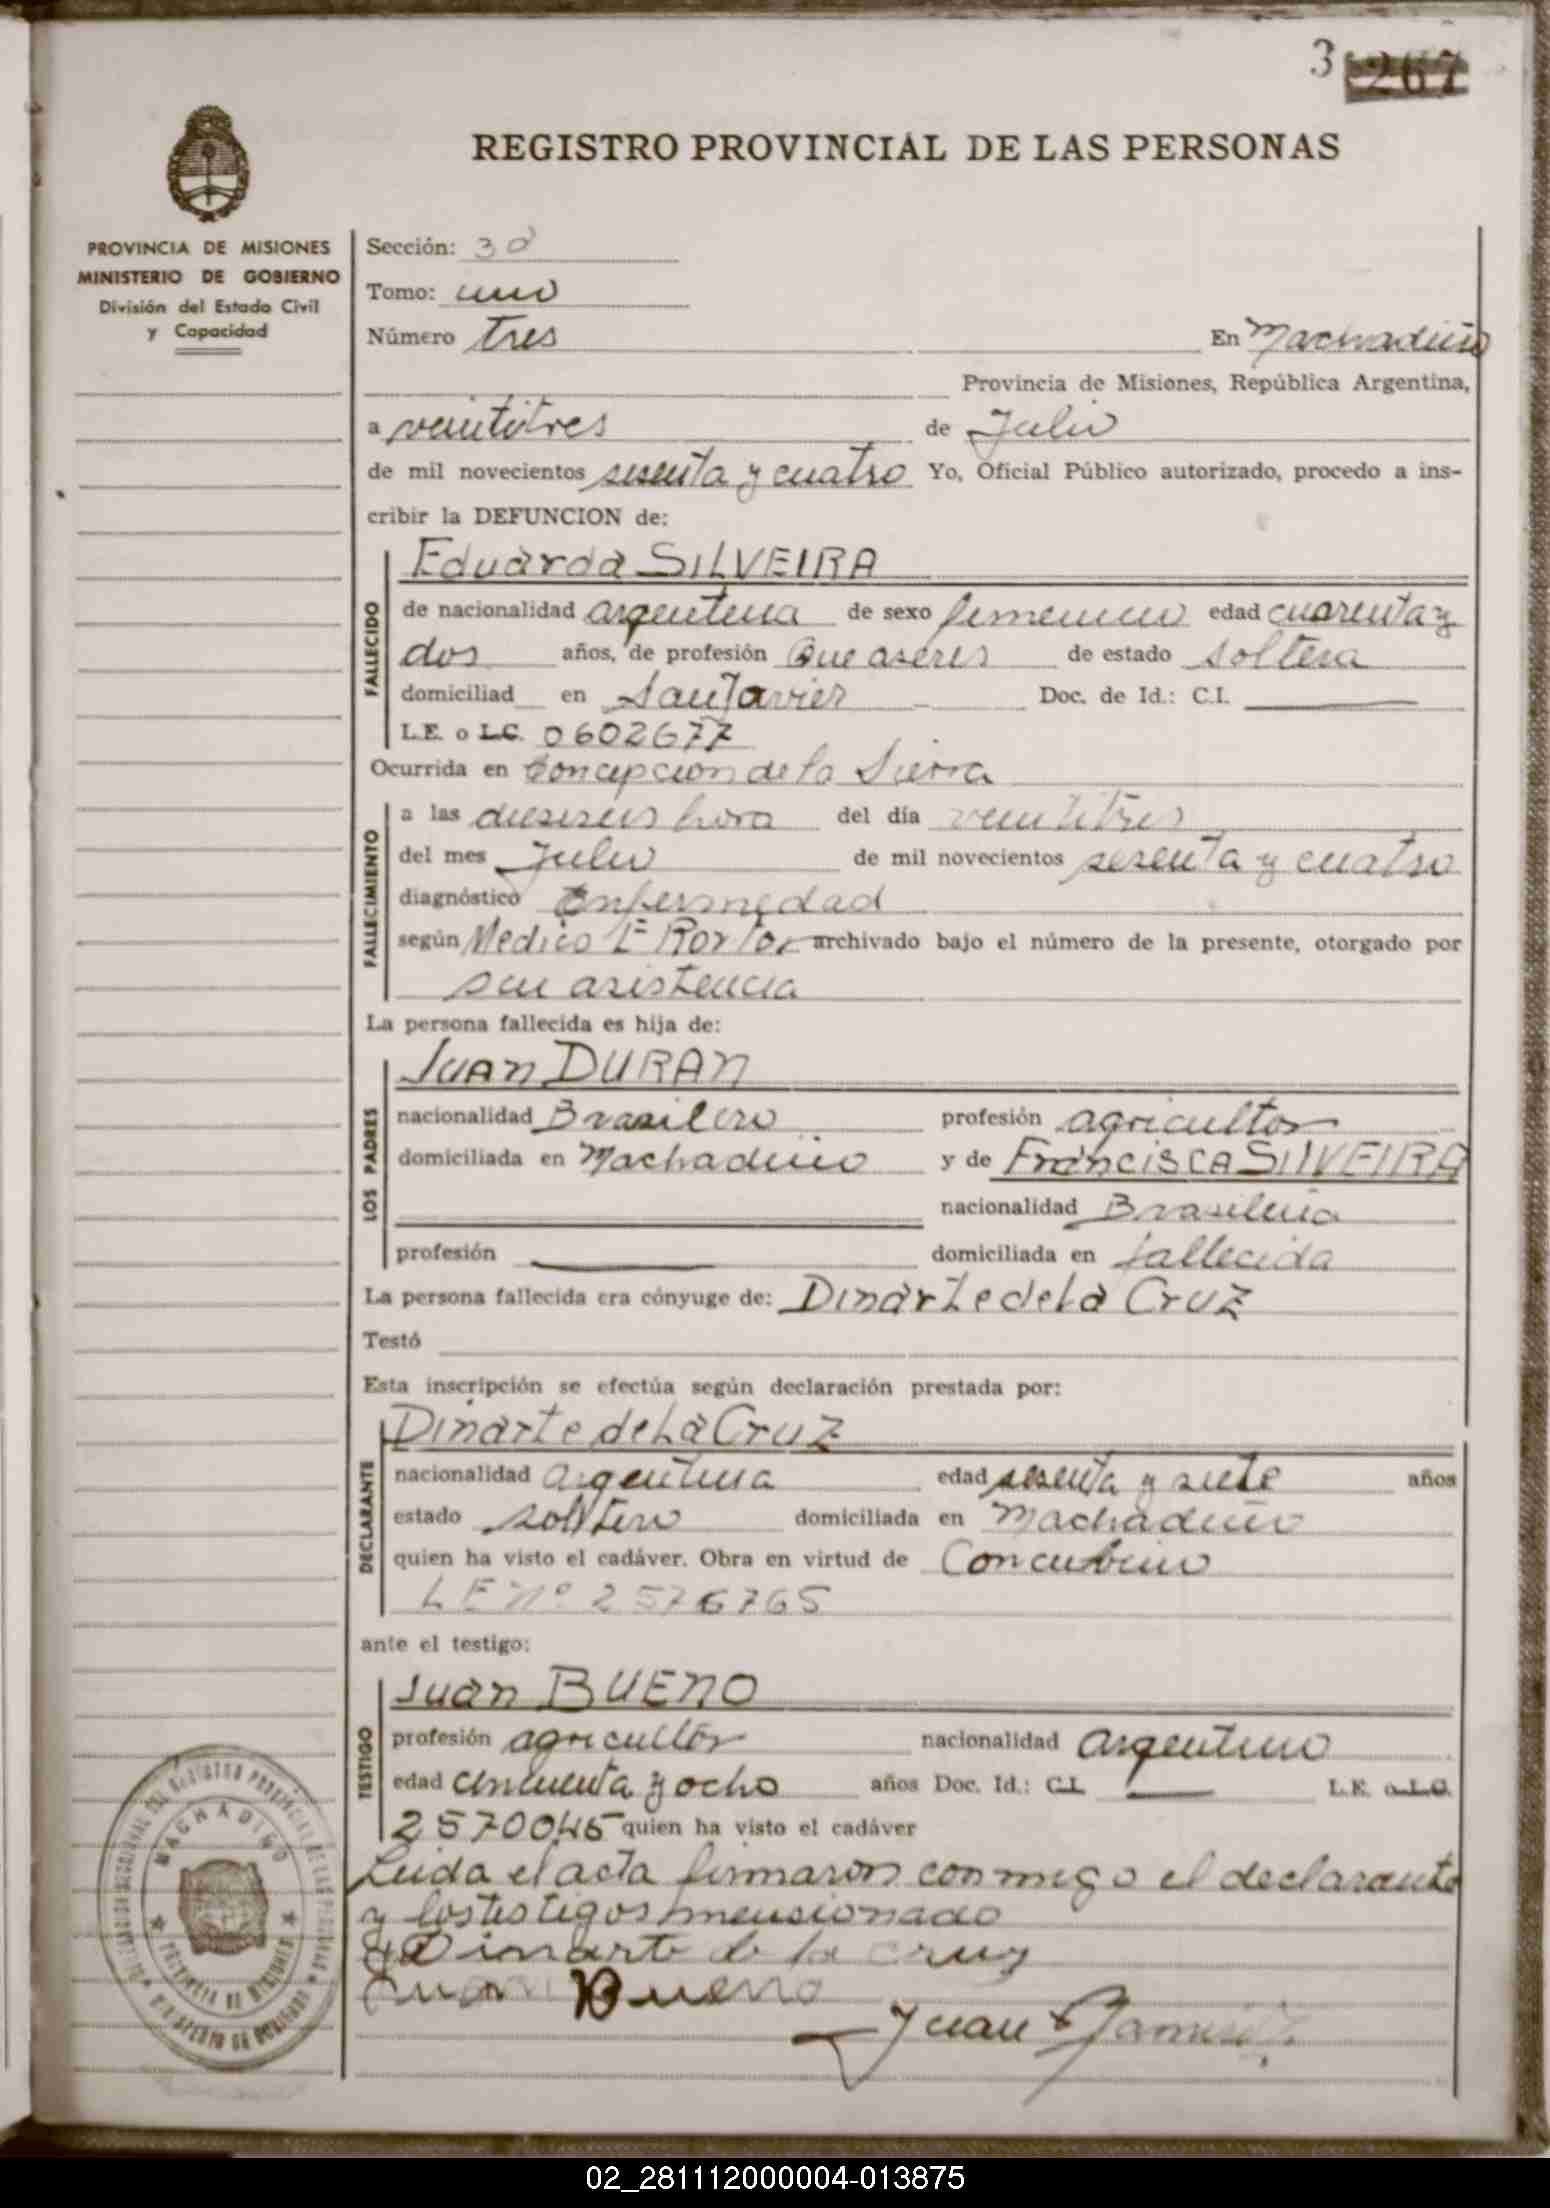 3 267
REGISTRO PROVINCIAL DE LAS PERSONAS
PROVINCIA DE MISIONES
MINISTERIO DE GOBIERNO
División del Estado Civil
y Capacidad
Sección: 3ª
Tomo: uno
Número tres En Machadiño
Provincia de Misiones, República Argentina,
a veintitres de Julio
de mil novecientos sesenta y cuatro Yo, Oficial Público autorizado, procedo a ins-
cribir la DEFUNCION de:
FALLECIDO
Eduarda SILVEIRA
de nacionalidad argentina de sexo femenino edad cuarenta y
dos años, de profesión Que aseres de estado soltera
domiciliad en San Javier Doc. de Id.: C.I.
L.E. o L.C. 0602677
Ocurrida en Concepcion de la Sierra
FALLECIMIENTO
a las dieseseis hora del día veintitres
del mes Julio de mil novecientos sesenta y cuatro
diagnóstico Enfermedad
según Medico archivado bajo el número de la presente, otorgado por
sin asistencia
La persona fallecida es hija de:
LOS PADRES
Juan DURAN
nacionalidad Brasilero profesión agricultor
domiciliada en Machadiño y de Francisca SILVEIRA
nacionalidad Brasileña
profesión domiciliada en fallecida
La persona fallecida era cónyuge de: Dinarte de La Cruz
Testó
Esta inscripción se efectúa según declaración prestada por:
DECLARANTE
Dinarte de La Cruz
nacionalidad argentina edad sesenta y siete años
estado soltero domiciliada en Machadiño
quien ha visto el cadáver. Obra en virtud de Concubino
LE nº 2576765
ante el testigo:
TESTIGO
Juan BUENO
profesión agricultor nacionalidad argentino
edad cincuenta y ocho años Doc. Id.: C.I. L.E. o L.C.
2570045 quien ha visto el cadáver
Leida el acta firmaron conmigo el declarante
y los testigos mensionado
Dinarte de la cruz
Juan Bueno
Juan
MACHADIÑO
PROVINCIA DE MISIONES
02_281112000004-013875